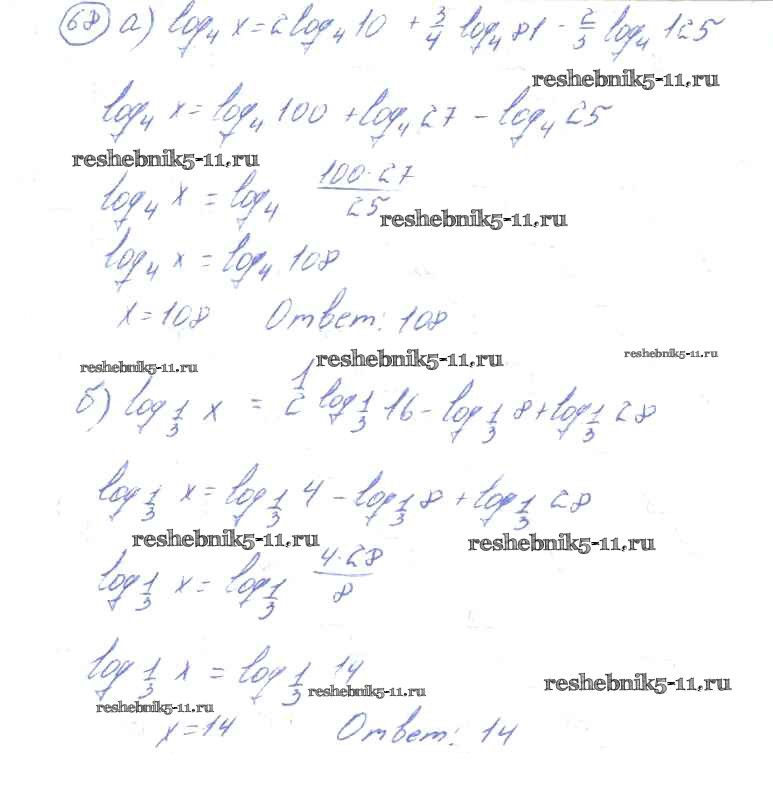 68 а) log₄ x = 2 log₄ 10 + 3/4 log₄ 81 - 2/3 log₄ 125
reshebnik5-11.ru
log₄ x = log₄ 100 + log₄ 27 - log₄ 25
reshebnik5-11.ru
log₄ x = log₄ 100·27/25
reshebnik5-11.ru
log₄ x = log₄ 108
x = 108 Ответ: 108
reshebnik5-11.ru reshebnik5-11.ru reshebnik5-11.ru
б) log_1/3 x = 1/2 log_1/3 16 - log_1/3 8 + log_1/3 28
log_1/3 x = log_1/3 4 - log_1/3 8 + log_1/3 28
reshebnik5-11.ru reshebnik5-11.ru
log_1/3 x = log_1/3 4·28/8
log_1/3 x = log_1/3 14
reshebnik5-11.ru reshebnik5-11.ru reshebnik5-11.ru
x = 14 Ответ: 14